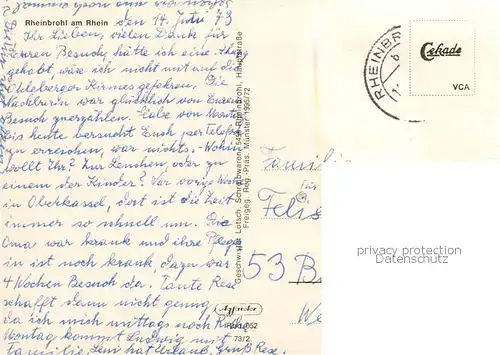 Rheinbrohl am Rhein
den 14. Juli 73
Ihr Lieben, vielen Dank für
Euren Besuch, hätte ich eine
gehabt, wäre ich nicht mit auf die
Ohleberger Kirmes gefahren. Die
Nachbarin war glücklich von Euren
Besuch zu erzählen. Habe von
bis heute versucht Euch per Telefon
zu erreichen, war nichts. Wohin
wollt Ihr? Zur Lenchen, oder zu
einem der Kinder? War vorige Woche
in Oberkassel, dort ist die Zeit
immer so schnell um. Die
Oma war krank und ihre Pflege
in ist noch krank, dazu war
4 Wochen Besuch da. Tante Rese
schafft dann nicht genug
da ich mich mittags noch
Montag kommt Ludwig mit
Familie, Leni hat Urlaub, Gruß Rese.
Geschwister Lötsch, Schreibwaren, 5456 Rheinbrohl, Hauptstraße
Freigeg. Reg.-Präs. Münster 1995/72
Agfacolor
052
73/2
RHEINBR
Cekade
VCA
Familie
Für
Felis
53 B
We
privacy protection
Datenschutz